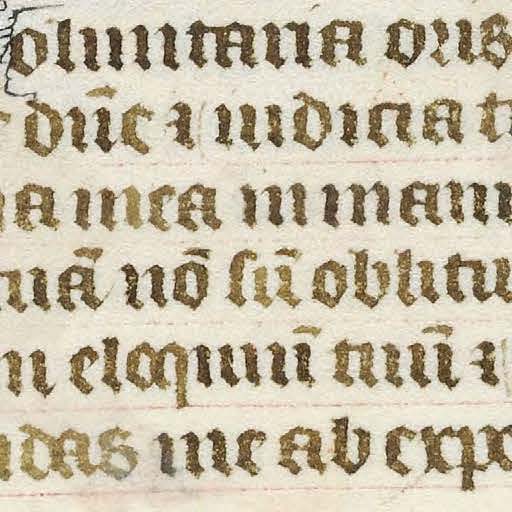 oluntaria oris
dn̄e ⁊ iudicia t
a mea in mani
tuā nō sū oblitu
m eloquiū tuū ⁊
ndas me ab expe